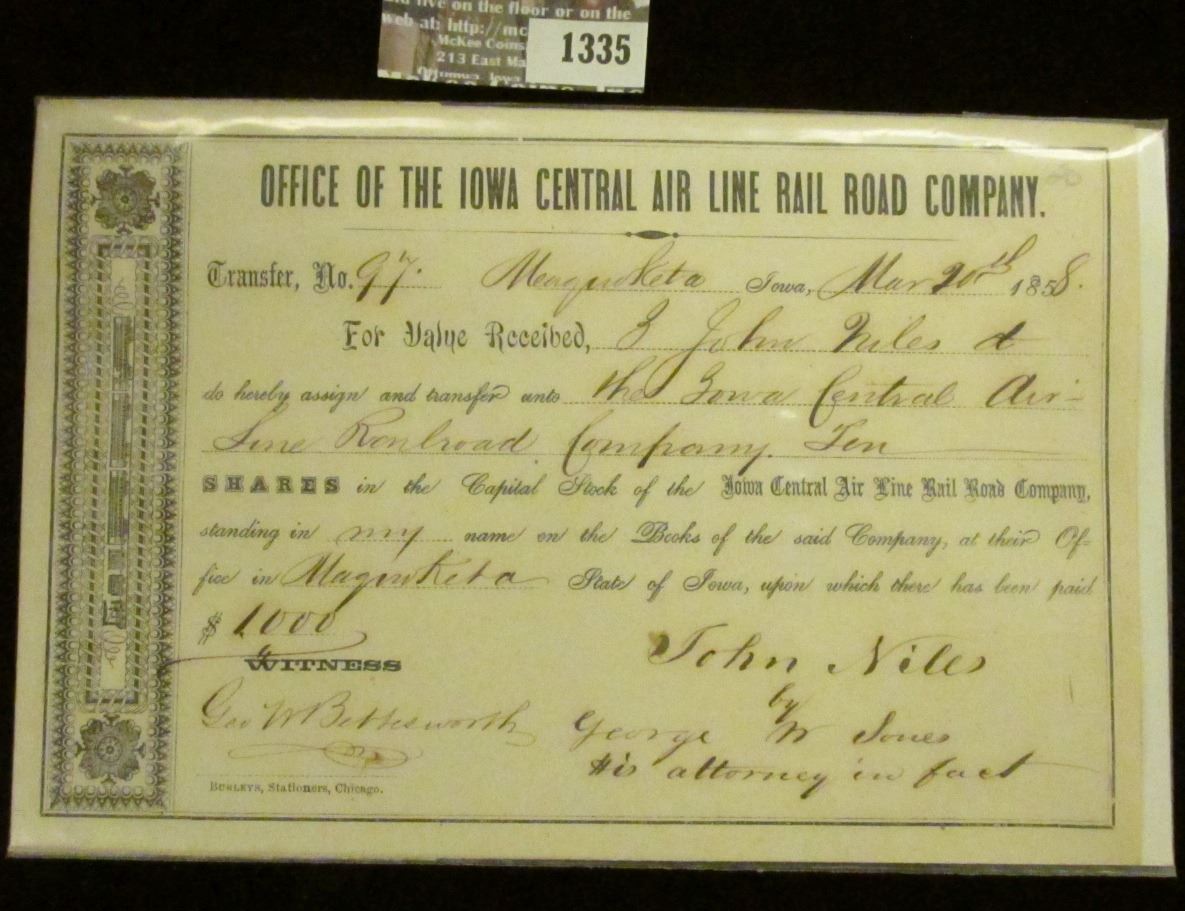 and live on the floor or on the
web at: http://mc
McKee Coins
213 East Ma
Ottumwa, Iowa
1335
OFFICE OF THE IOWA CENTRAL AIR LINE RAIL ROAD COMPANY.
Transfer, No. 97. Maquoketa Iowa, Mar 20th 1858.
For Value Received, I John Niles
do hereby assign and transfer unto the Iowa Central Air-
Line Railroad Company. Ten
SHARES in the Capital Stock of the Iowa Central Air Line Rail Road Company,
standing in my name on the Books of the said Company, at their Of-
fice in Maquoketa State of Iowa, upon which there has been paid
$ 1000
WITNESS
John Niles
by
Geo W Bettesworth
George W Jones
His attorney in fact
BURLEYS, Stationers, Chicago.